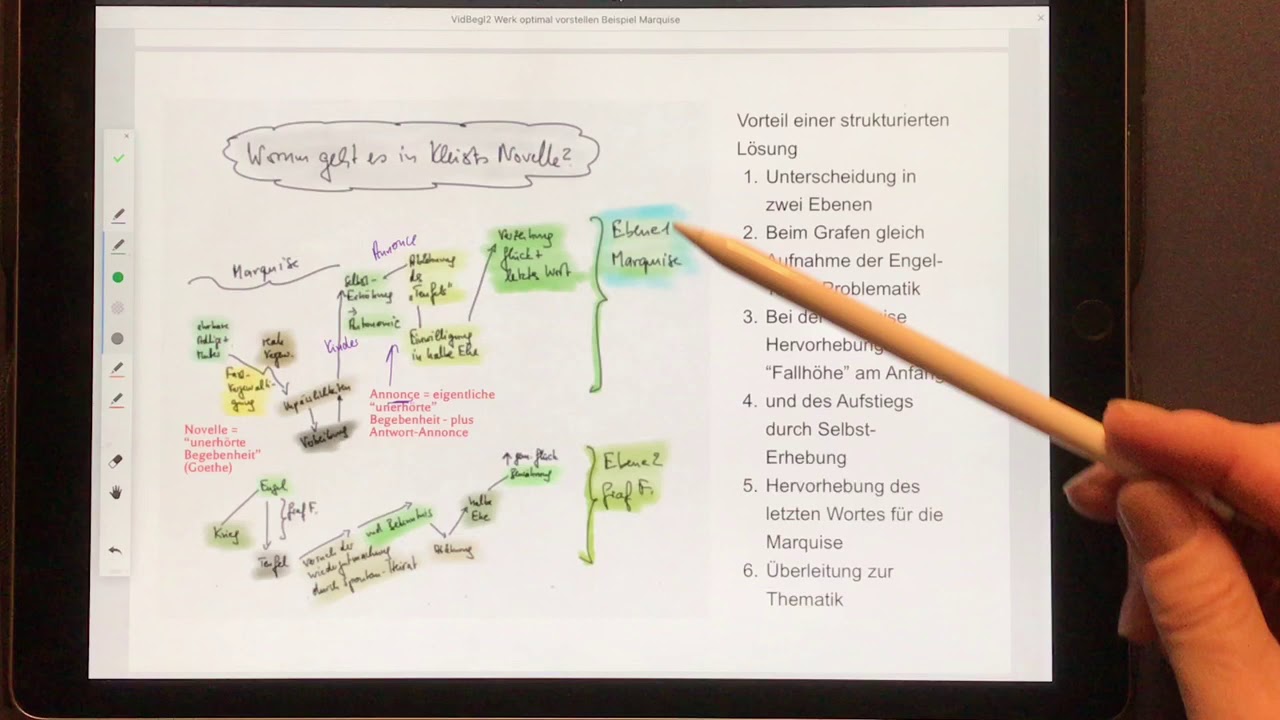 VidBegl2 Werk optimal vorstellen Beispiel Marquise
Worum geht es in Kleists Novelle?
Marquise
Annonce
Selbst-
Erhöhung
→
Autonomie
Ablehnung
des
„Teufels"
Verzeihung
Glück +
letztes Wort
Ebene 1
Marquise
ehrbare
Adlige +
Mutter
reale
Vergew.
Fast-
Vergewalti-
gung
Kindes
Einwilligung
in halbe Ehe
Verstoßung
Annonce = eigentliche
"unerhörte"
Begebenheit - plus
Antwort-Annonce
Novelle =
"unerhörte
Begebenheit"
(Goethe)
Engel
Graf F.
Krieg
Teufel
Versuch der
Wiedergutmachung
durch Spontan-Heirat
und Bekenntnis
Ablehnung
halbe
Ehe
Bewährung
Ebene 2
Graf F.
Vorteil einer strukturierten
Lösung
1. Unterscheidung in
zwei Ebenen
2. Beim Grafen gleich
Aufnahme der Engel-
Problematik
3. Bei der
Hervorhebung
"Fallhöhe" am Anfang
4. und des Aufstiegs
durch Selbst-
Erhebung
5. Hervorhebung des
letzten Wortes für die
Marquise
6. Überleitung zur
Thematik